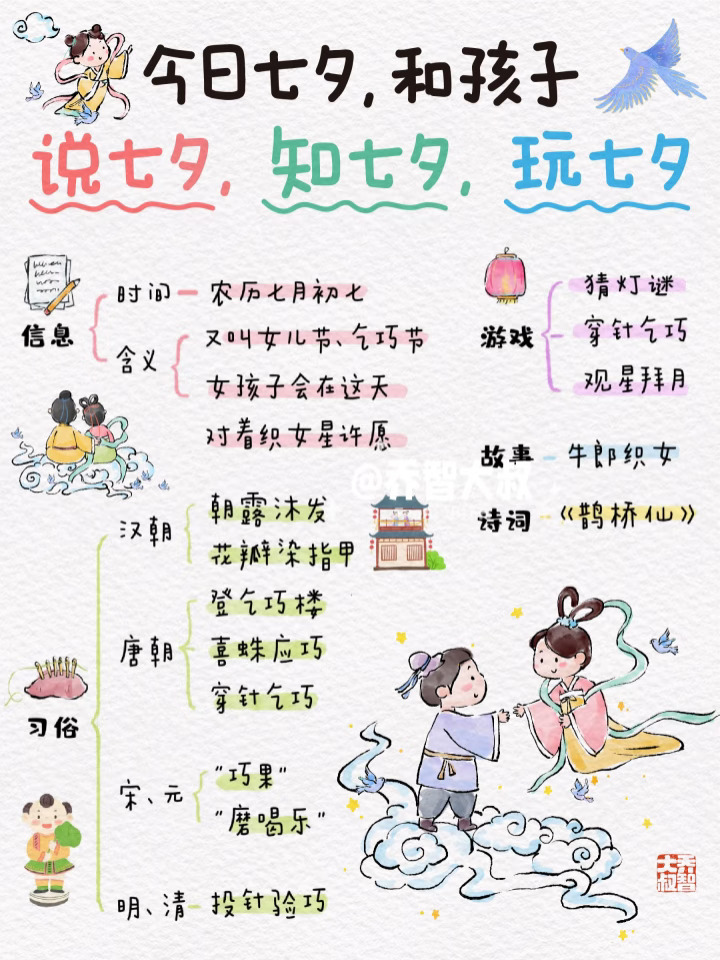 今日七夕,和孩子
说七夕,知七夕,玩七夕
信息
时间
农历七月初七
含义
又叫女儿节、乞巧节
女孩子会在这天
对着织女星许愿
习俗
汉朝
朝露沐发
花瓣染指甲
唐朝
登乞巧楼
喜蛛应巧
穿针乞巧
宋、元
"巧果"
"磨喝乐"
明、清
投针验巧
游戏
猜灯谜
穿针乞巧
观星拜月
故事
牛郎织女
诗词
《鹊桥仙》
@乔智大叔
乔智大叔